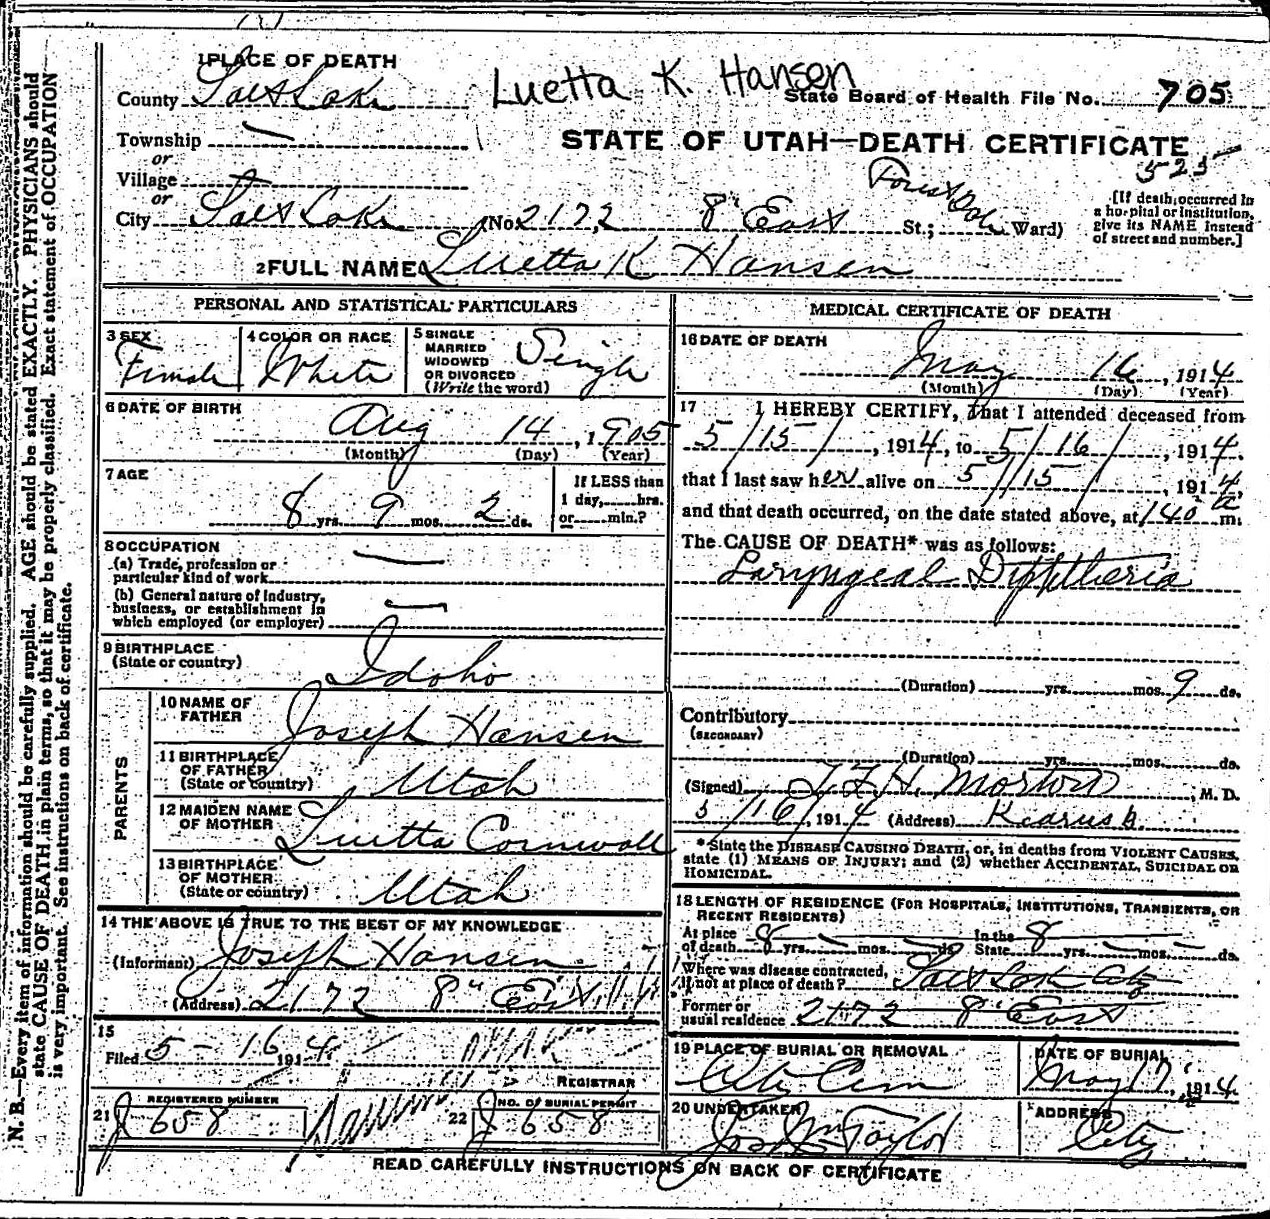 1 PLACE OF DEATH
County Salt Lake
Luetta K. Hansen
State Board of Health File No. 705
Township —
or
Village
or
STATE OF UTAH—DEATH CERTIFICATE
525
Forest Dale
City Salt Lake (No. 2172 8" East St.; Ward)
[If death occurred in
a hospital or institution,
give its NAME instead
of street and number.]
2 FULL NAME Luetta K Hansen
PERSONAL AND STATISTICAL PARTICULARS
3 SEX
Female
4 COLOR OR RACE
White
5 SINGLE
MARRIED
WIDOWED
OR DIVORCED
(Write the word)
Single
6 DATE OF BIRTH
Aug 14, 1905
(Month) (Day) (Year)
7 AGE
8 yrs. 9 mos. 2 ds.
If LESS than
1 day,......hrs.
or......min.?
8 OCCUPATION
(a) Trade, profession or
particular kind of work —
(b) General nature of industry,
business, or establishment in
which employed (or employer) —
9 BIRTHPLACE
(State or country)
Idaho
PARENTS
10 NAME OF
FATHER
Joseph Hansen
11 BIRTHPLACE
OF FATHER
(State or country)
Utah
12 MAIDEN NAME
OF MOTHER
Luetta Cornwall
13 BIRTHPLACE
OF MOTHER
(State or country)
Utah
14 THE ABOVE IS TRUE TO THE BEST OF MY KNOWLEDGE
(Informant) Joseph Hansen
(Address) 2172 8" East
15
Filed 5-16 1914
REGISTRAR
21 REGISTERED NUMBER
J 658
22 NO. OF BURIAL PERMIT
J 658
MEDICAL CERTIFICATE OF DEATH
16 DATE OF DEATH
May 16, 1914
(Month) (Day) (Year)
17 I HEREBY CERTIFY, That I attended deceased from
5/15/, 1914, to 5/16/, 1914,
that I last saw her alive on 5/15, 1914,
and that death occurred, on the date stated above, at 140 a m.
The CAUSE OF DEATH* was as follows:
Laryngeal Diphtheria
(Duration) yrs. mos. 9 ds.
Contributory
(SECONDARY)
(Duration) yrs. mos. ds.
(Signed) Morton, M. D.
5/16/, 1914 (Address) Kearns b.
*State the DISEASE CAUSING DEATH, or, in deaths from VIOLENT CAUSES,
state (1) MEANS OF INJURY; and (2) whether ACCIDENTAL, SUICIDAL OR
HOMICIDAL.
18 LENGTH OF RESIDENCE (FOR HOSPITALS, INSTITUTIONS, TRANSIENTS, OR
RECENT RESIDENTS)
At place
of death 8 yrs. — mos. — ds.
In the
State 8 yrs. — mos. — ds.
Where was disease contracted,
if not at place of death? Salt Lake City
Former or
usual residence 2172 8" East
19 PLACE OF BURIAL OR REMOVAL
City Cem
DATE OF BURIAL
May 17, 1914
20 UNDERTAKER
Jos Wm Taylor
ADDRESS
City
READ CAREFULLY INSTRUCTIONS ON BACK OF CERTIFICATE
N. B.—Every item of information should be carefully supplied. AGE should be stated EXACTLY. PHYSICIANS should
state CAUSE OF DEATH in plain terms, so that it may be properly classified. Exact statement of OCCUPATION
is very important. See instructions on back of certificate.